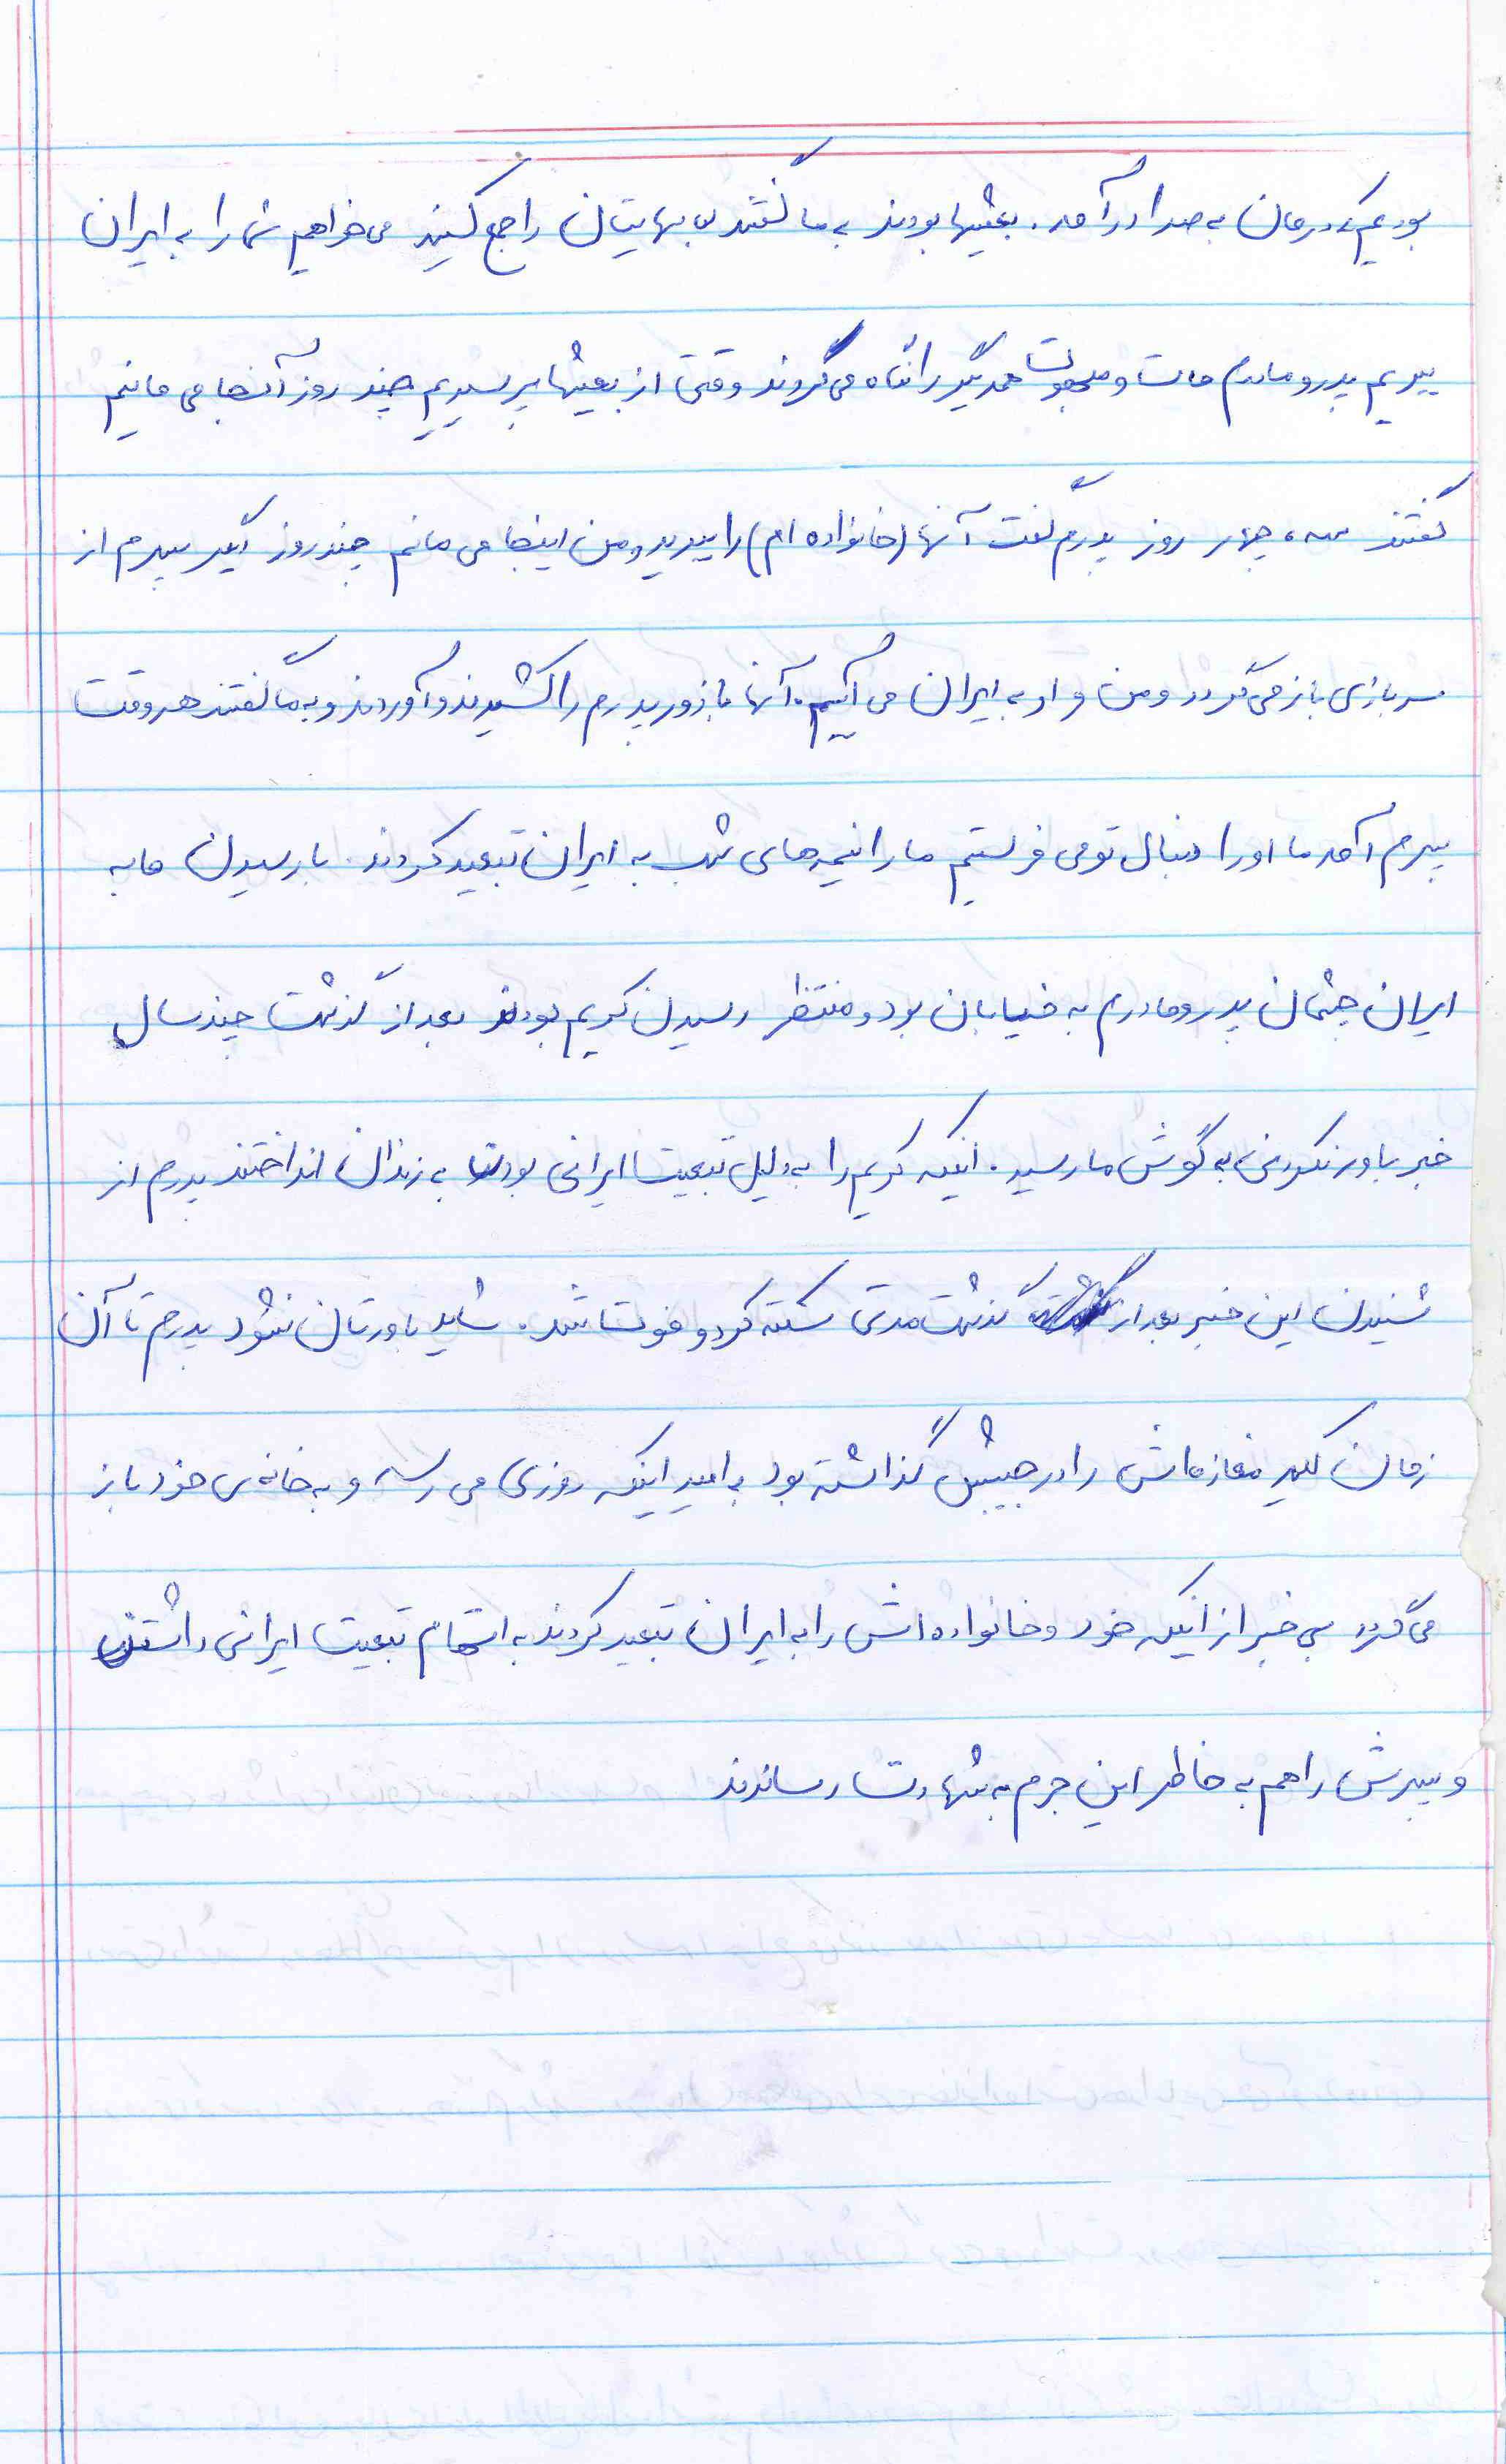 بودیم که درمان به صدا درآمد. بعثیها بودند به ما گفتند لباسهایتان را جمع کنید می‌خواهیم شما را به ایران
ببریم پدر و مادرم مات و مبهوت همدیگر را نگاه می‌کردند وقتی از بعثیها پرسیدیم چند روز آنجا می‌مانیم
گفتند سه، چهار روز پدرم گفت آنها (خانواده ام) را ببرید و من اینجا می‌مانم چند روز دیگر پسرم از
سربازی باز می‌گردد و من و او به ایران می‌آئیم. آنها با زور پدرم را کشیدند و آوردند و به ما گفتند هر وقت
پسرم آمد ما او را دنبال تو می‌فرستیم ما را نیمه‌های شب به ایران تبعید کردند. با رسیدن ما به
ایران چشمان پدر و مادرم به خیابان بود و منتظر رسیدن کریم بودند بعد از گذشت چند سال
خبر باورنکردنی به گوش ما رسید. اینکه کریم را به دلیل تبعیت ایرانی بودن به زندان انداختند پدرم از
شنیدن این خبر بعد از گذشت مدتی سکته کرد و فوت شد. شاید باورتان نشود پدرم تا آن
زمان کلید مغازه‌اش را در جیبش گذاشته بود به امید اینکه روزی می‌رسد و به خانه‌ی خود باز
می‌گردد بی خبر از اینکه خود و خانواده‌اش را به ایران تبعید کردند به اتهام تبعیت ایرانی داشتن
و پسرش را هم به خاطر این جرم به شهادت رساندند